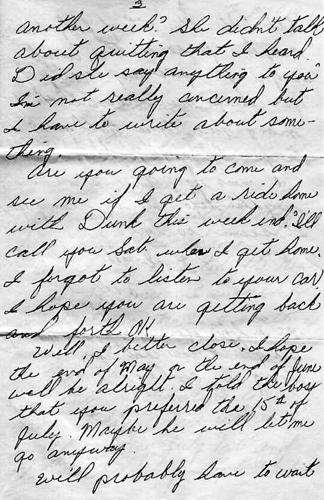 3
another week? She didn't talk
about quitting that I heard.
Did she say anything to you?
I'm not really concerned but
I have to write about some-
thing.
Are you going to come and
see me if I get a ride home
with Dunk this week end. I'll
call you Sat. when I get home.
I forgot to listen to your car,
I hope you are getting back
and forth OK.
Well, I better close. I hope
the end of May or the end of June
will be alright. I told the boss
that you preferred the 15th of
July. Maybe he will let me
go anyway.
Will probably have to wait